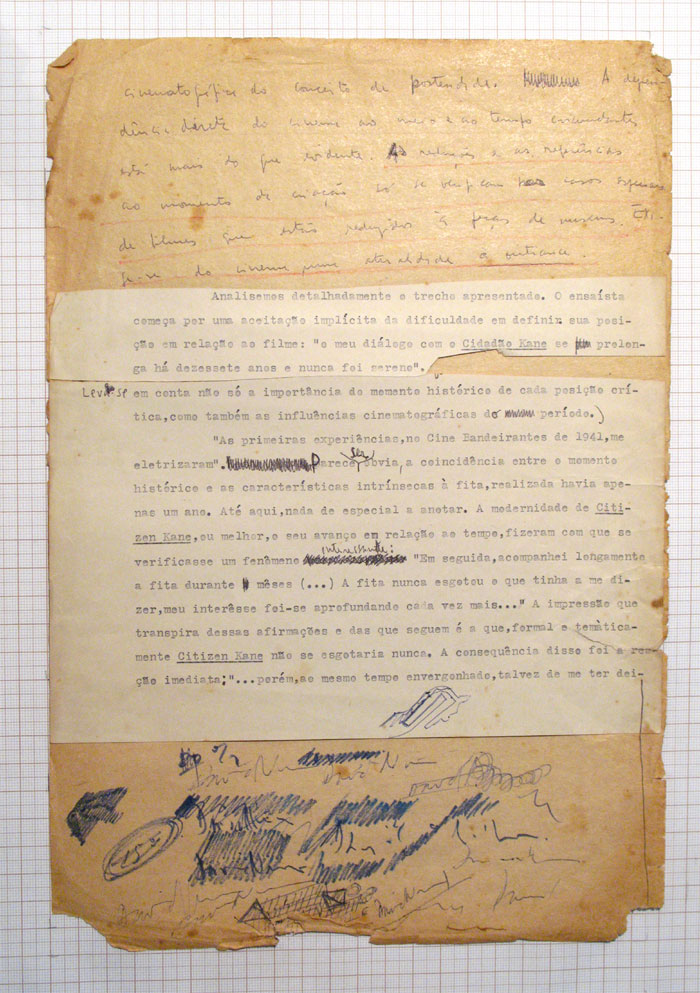 cinematográfica do conceito de posteridade. A depen-
dência direta do cinema ao meio e ao tempo circundantes
está mais do que evidente. redução e as referências
ao momento de criação só se casos especiais
de filmes que estão reduzidos à peças de museus.
do cinema uma atualidade a outrance.
Analisemos detalhadamente o trecho apresentado. O ensaísta
começa por uma aceitação implícita da dificuldade em definir sua posi-
ção em relação ao filme: "o meu diálogo com o Cidadão Kane se prolon-
ga há dezessete anos e nunca foi sereno".
Leva-se em conta não só a importância do momento histórico de cada posição crí-
tica,como também as influências cinematográficas do período.)
"As primeiras experiências,no Cine Bandeirantes de 1941,me
eletrizaram". Parece ser obvia, a coincidência entre o momento
histórico e as características intrínsecas à fita,realizada havia ape-
nas um ano. Até aqui,nada de especial a anotar. A modernidade de Citi-
zen Kane,ou melhor,o seu avanço em relação ao tempo,fizeram com que se
verificasse um fenômeno interessante: "Em seguida,acompanhei longamente
a fita durante mêses (...) A fita nunca esgotou o que tinha a me di-
zer,meu interêsse foi-se aprofundando cada vez mais..." A impressão que
transpira dessas afirmações e das que seguem é a que,formal e temàtica-
mente Citizen Kane não se esgotaria nunca. A consequência disso foi a rea-
ção imediata;"...porém,ao mesmo tempo envergonhado,talvez de me ter dei-
David